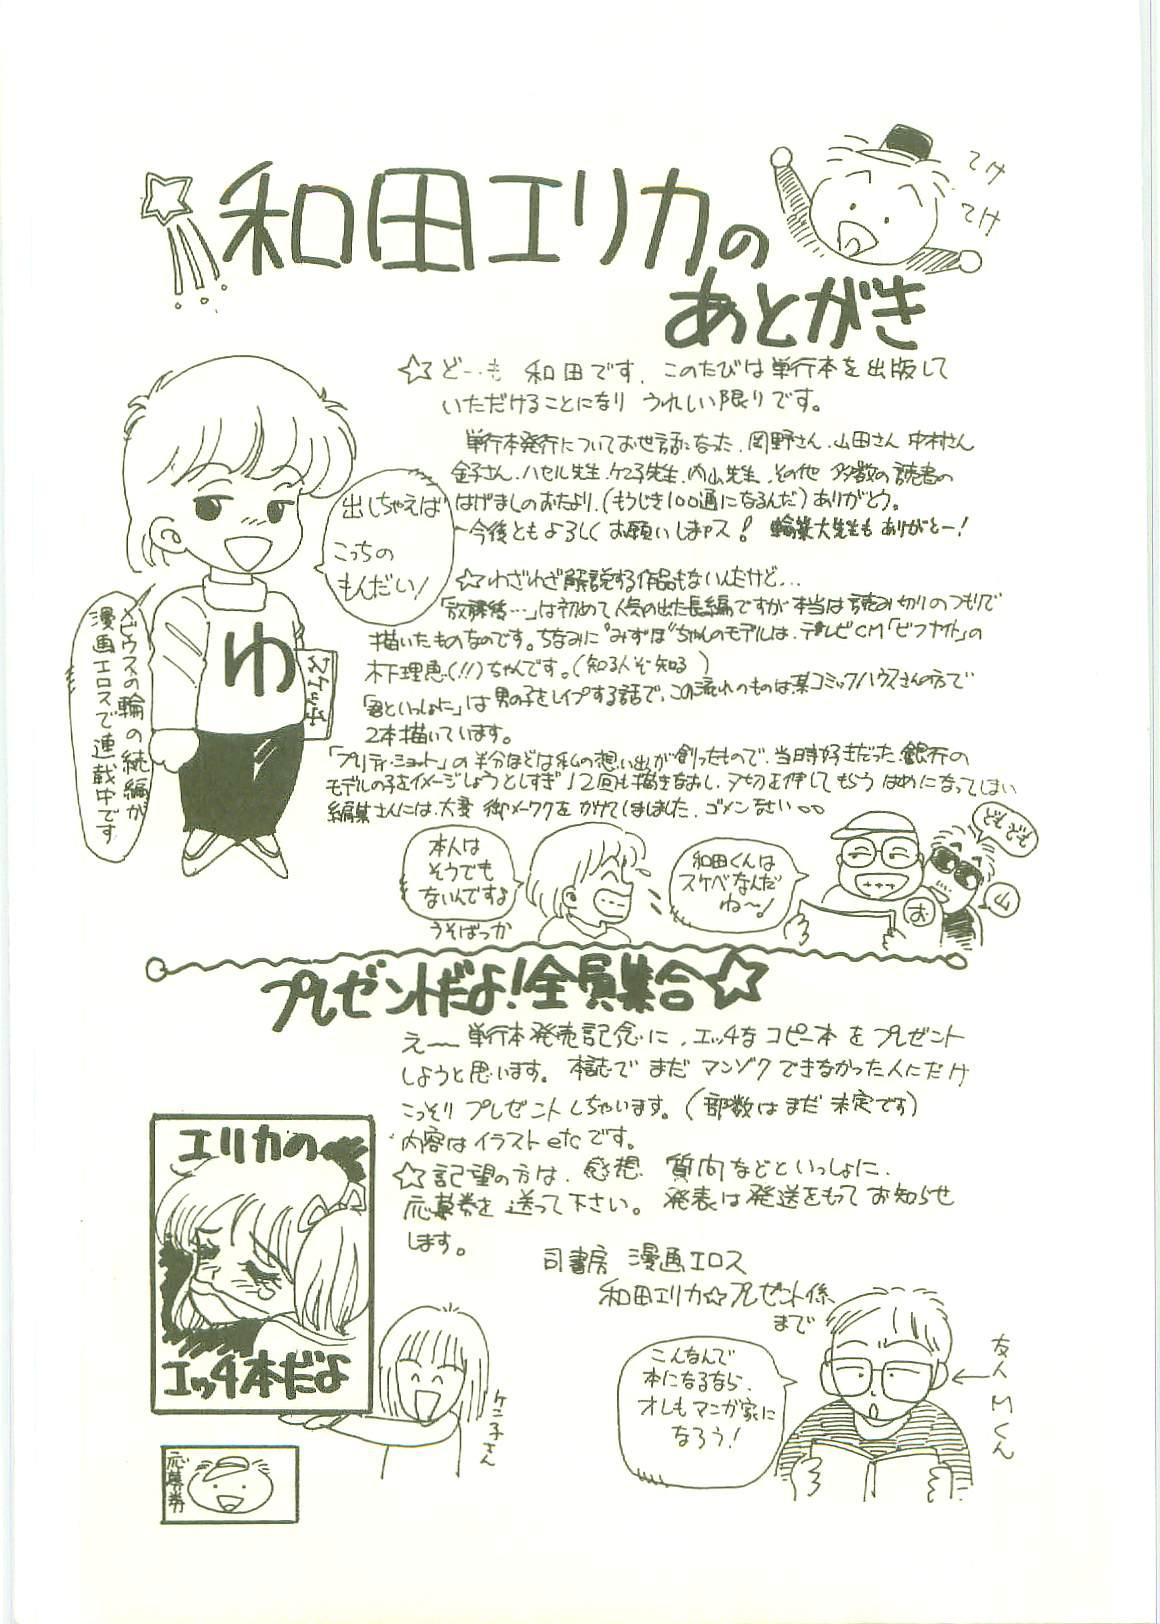 和田エリカの
あとがき
てけ
てけ
☆ど…も 和田です. このたびは単行本を出版して
いただけることになり うれしい限りです。
単行本発行についてお世話になった. 岡野さん. 山田さん 中村さん
金子さん. ハセル先生. ケニ子先生. 内山先生. その他 多数の読者の
はげましのおたより. (もうじき100通になるんだ) ありがとう。
〜今後ともよろしく お願いしまァス! 輪業大先生も ありがとー!
出しちゃえば
こっちの
もんだい!
ゆ
スケッチ
メビウスの輪の続編が
漫画エロスで連載中です
☆わざわざ解説する作品もないんだけど...
「放課後…」は初めて人気の出た長編ですが本当は読み切りのつもりで
描いたものなのです。ちなみに"みずほ"ちゃんのモデルは、テレビCM「ビフナイト」の
木下理恵(!!)ちゃんです。(知る人ぞ知る)
「君といっしょに」は男の子をレイプする話で、この流れのものは某コミックハウスさんの方で
2本描いています。
「プリティ・ショット」の半分ほどは私の想い出が創ったもので、当時好きだった銀行の
モデルの子をイメージしようとしすぎ12回も描きなおし、〆切を伸してもらうはめになってしまい
編集さんには、大変 御メーワクを かけてしまいました. ゴメンなさい
本人は
そうでも
ないんですよ
うそばっか
和田くんは
スケベなんだ
ね〜!
どもども
お
山
プレゼントだよ!全員集合☆
えー 単行本発売記念に、エッチな コピー本 を プレゼント
しようと思います。 本誌で まだ マンゾク できなかった人にだけ
こっそり プレゼント しちゃいます。(部数は まだ 未定です)
内容は イラスト etc です。
☆記望の方は、感想 質向などといっしょに、
応募券を 送って下さい。 発表は発送をもって お知らせ
します。
司書房 漫画エロス
和田エリカ☆プレゼント係
まで
エリカの
エッチ本だよ
ケニ子さん
応募券
こんなんで
本になるなら、
オレもマンガ家に
なろう!
友人Mくん